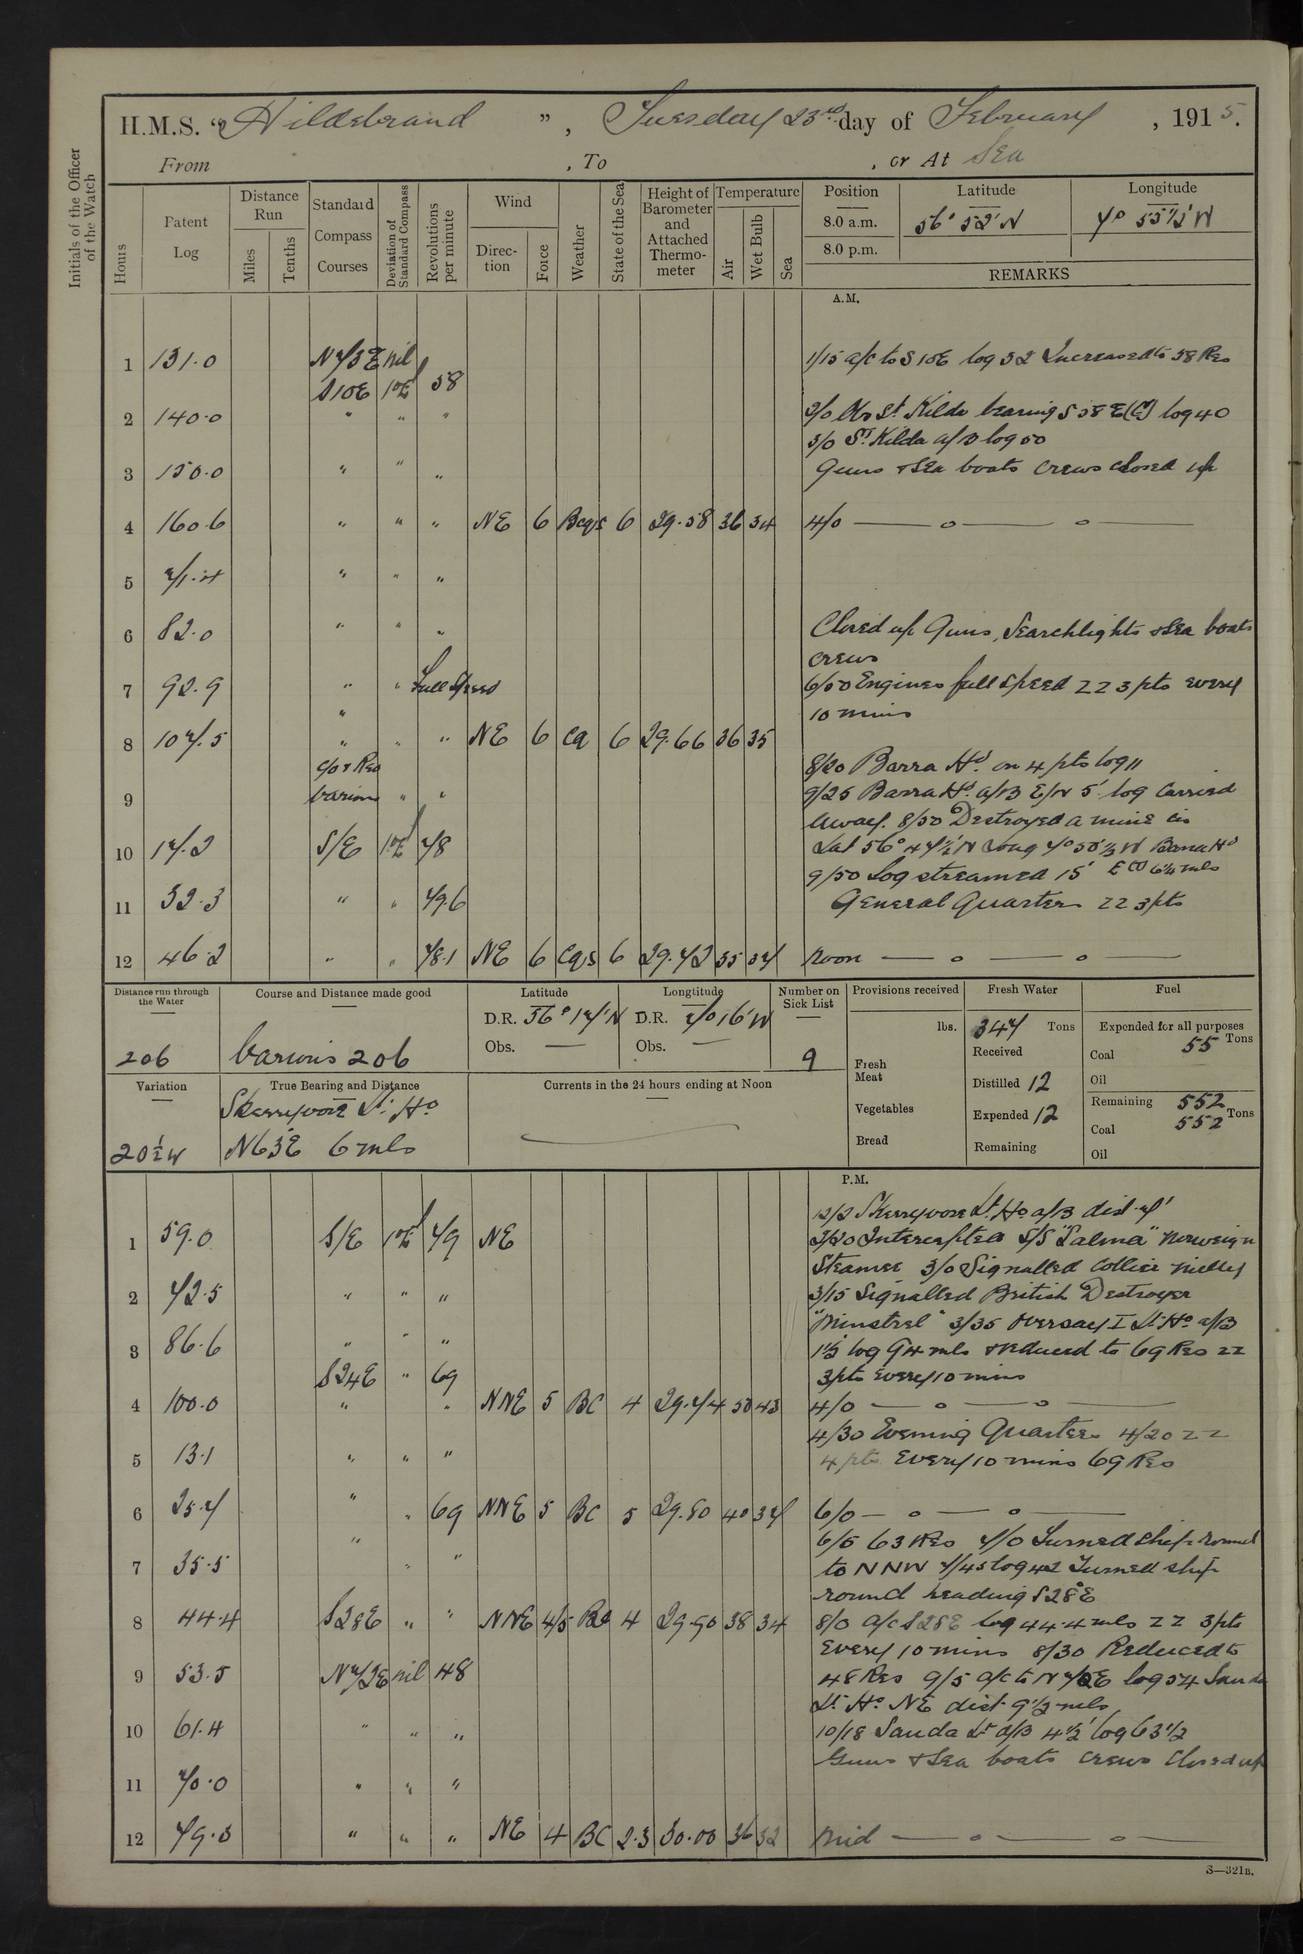 H.M.S. "Hildebrand", Tuesday 23rd day of February, 1915.
From , To , or At Sea
Initials of the Officer of the Watch
Hours
Patent Log
Distance Run
Miles
Tenths
Standard Compass Courses
Deviation of Standard Compass
Revolutions per minute
Wind
Direction
Force
Weather
State of the Sea
Height of Barometer and Attached Thermometer
Temperature
Air
Wet Bulb
Sea
Position Latitude Longitude
8.0 a.m. 56° 52' N 7° 55 1/2' W
8.0 p.m.
REMARKS
A.M.
1 131.0 N73E nil 1/15 a/c to S10E log 32 Increased to 58 Res
S10E 1°E 58
2 140.0 " " " 2/0 Obs St. Kilda bearing S 58 E (C) log 40
3/0 St. Kilda a/B log 50
3 150.0 " " " Guns & Sea boats crews closed up
4 160.6 " " " NE 6 Bcqs 6 29.58 36 34 4/0 — o — o —
5 71.4 " " "
6 82.0 " " " Closed up Guns, Searchlights & Sea boats
crews
7 92.9 " " Full Speed 6/50 Engines full speed ZZ 3 pts every
" 10 mins
8 107.5 " " " NE 6 cq 6 29.66 36 35
c/o & Res 8/20 Barra Hd. on 4 pts log 11
9 various " " 9/25 Barra Hd. a/B E/N 5' log Carried
Away. 8/50 Destroyed a mine in
10 17.2 S/E 1°E 78 Lat 56° 47 1/2' N Long 7° 50 1/2 W Barra Hd
9/50 Log streamed 15' E 6 1/4 mls
11 32.3 " " 79.6 General Quarters ZZ 3 pts
12 46.2 " " 78.1 NE 6 cqs 6 29.72 35 34 noon — o — o —
Distance run through the Water
206
Course and Distance made good
various 206
Latitude
D.R. 56° 17' N
Obs. —
Longtitude
D.R. 7° 16' W
Obs. —
Number on Sick List
9
Provisions received
lbs.
Fresh Meat
Vegetables
Bread
Fresh Water
347 Tons
Received
Distilled 12
Expended 12
Remaining
Fuel
Expended for all purposes
Coal 55 Tons
Oil
Remaining 552
Coal 552 Tons
Oil
Variation
20 1/2 W
True Bearing and Distance
Skerryvore Lt. Ho
N63E 6 mls
Currents in the 24 hours ending at Noon
P.M.
12/2 Skerryvore Lt. Ho a/B dist 7'
1 59.0 S/E 1°E 79 NE 2/20 Intercepted S/S "Salma" Norweign
Steamer 3/0 Signalled Collier
2 72.5 " " " 3/15 Signalled British Destroyer
"Minstrel" 3/35 Oversay I Lt. Ho a/B
3 86.6 " " " 1 1/2' log 94 mls & reduced to 69 Res ZZ
S24E " 69 3 pts every 10 mins
4 100.0 " " NNE 5 BC 4 29.74 50 43 4/0 — o — o —
4/30 Evening Quarters 4/20 ZZ
5 13.1 " " " 4 pts every 10 mins 69 Res
6 25.7 " " 69 NNE 5 BC 5 29.80 40 37 6/0 — o — o —
6/5 63 Res 7/0 Turned ship round
7 35.5 " " " to NNW 7/45 log 42 Turned ship
round heading S28°E
8 44.4 S28E " " NNE 4/5 BC 4 29.90 38 34 8/0 a/c S28E log 44.4 mls ZZ 3 pts
every 10 mins 8/30 Reduced to
9 53.5 N72E nil 48 48 Res 9/5 a/c to N72E log 54 Sanda
Lt. Ho. NE dist 9 1/2 mls
10 61.4 " " " 10/18 Sanda Lt a/B 4 1/2' log 63 1/2
Guns & Sea boats crews Closed up
11 70.0 " " "
12 79.3 " " " NE 4 BC 2.3 30.00 36 32 Mid — o — o —
S—321B.